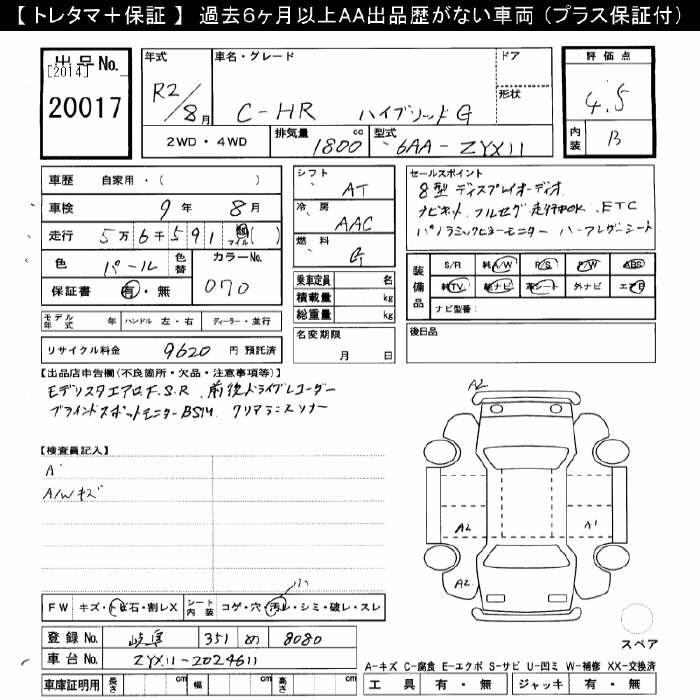 【 トレタマ＋保証 】 過去6ヶ月以上AA出品歴がない車両（プラス保証付）
出品No.
[2014]
20017
年式
R2/8月
車名・グレード
C-HR ハイブリッドG
ドア
形状
2WD・4WD
排気量 1800 cc
型式 6AA-ZYX11
評価点
4.5
内装 B
車歴 自家用・( )
車検 9年 8月
走行 5万6千591 km マイル ( )
色 パール 色替
カラーNo. 070
保証書 有・無
モデル年式 年 ハンドル 左・右 ディーラー・並行
リサイクル料金 9620 円 預託済
シフト AT
冷房 AAC
燃料 G
乗車定員 名
積載量 kg
総重量 kg
名変期限
月 日
セールスポイント
8型 ディスプレイオーディオ
ナビキット フルセグ 走行中OK ETC
パノラミックビューモニター ハーフレザーシート
装備品
S/R 純A/W P/S P/W ABS
純TV 純ナビ 革シート 外ナビ エアB
ナビ型番：
後日品
【出品店申告欄(不良箇所・欠品・注意事項等)】
モデリスタエアロF.S.R 前後ドライブレコーダー
ブラインドスポットモニターBSM クリアランスソナー
【検査員記入】
A
A/Wキズ
FW キズ・トビ石・割レX シート内装 コゲ・穴・汚レ・シミ・破レ・スレ
登録No. 岐阜 351 め 8080
車台No. ZYX11-2024611
車庫証明用 長さ cm 幅 cm 高さ cm
A2
A2
A1
A2
スペア
A-キズ C-腐食 E-エクボ S-サビ U-凹ミ W-補修 XX-交換済
工具 有・無 ジャッキ 有・無